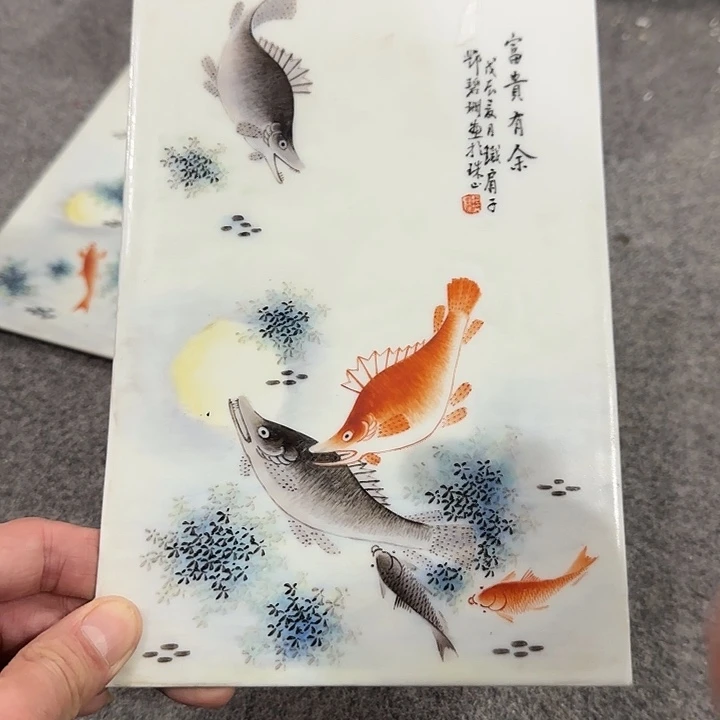 富貴有余
戊辰夏月鐵肩子
鄧碧珊畫於珠山